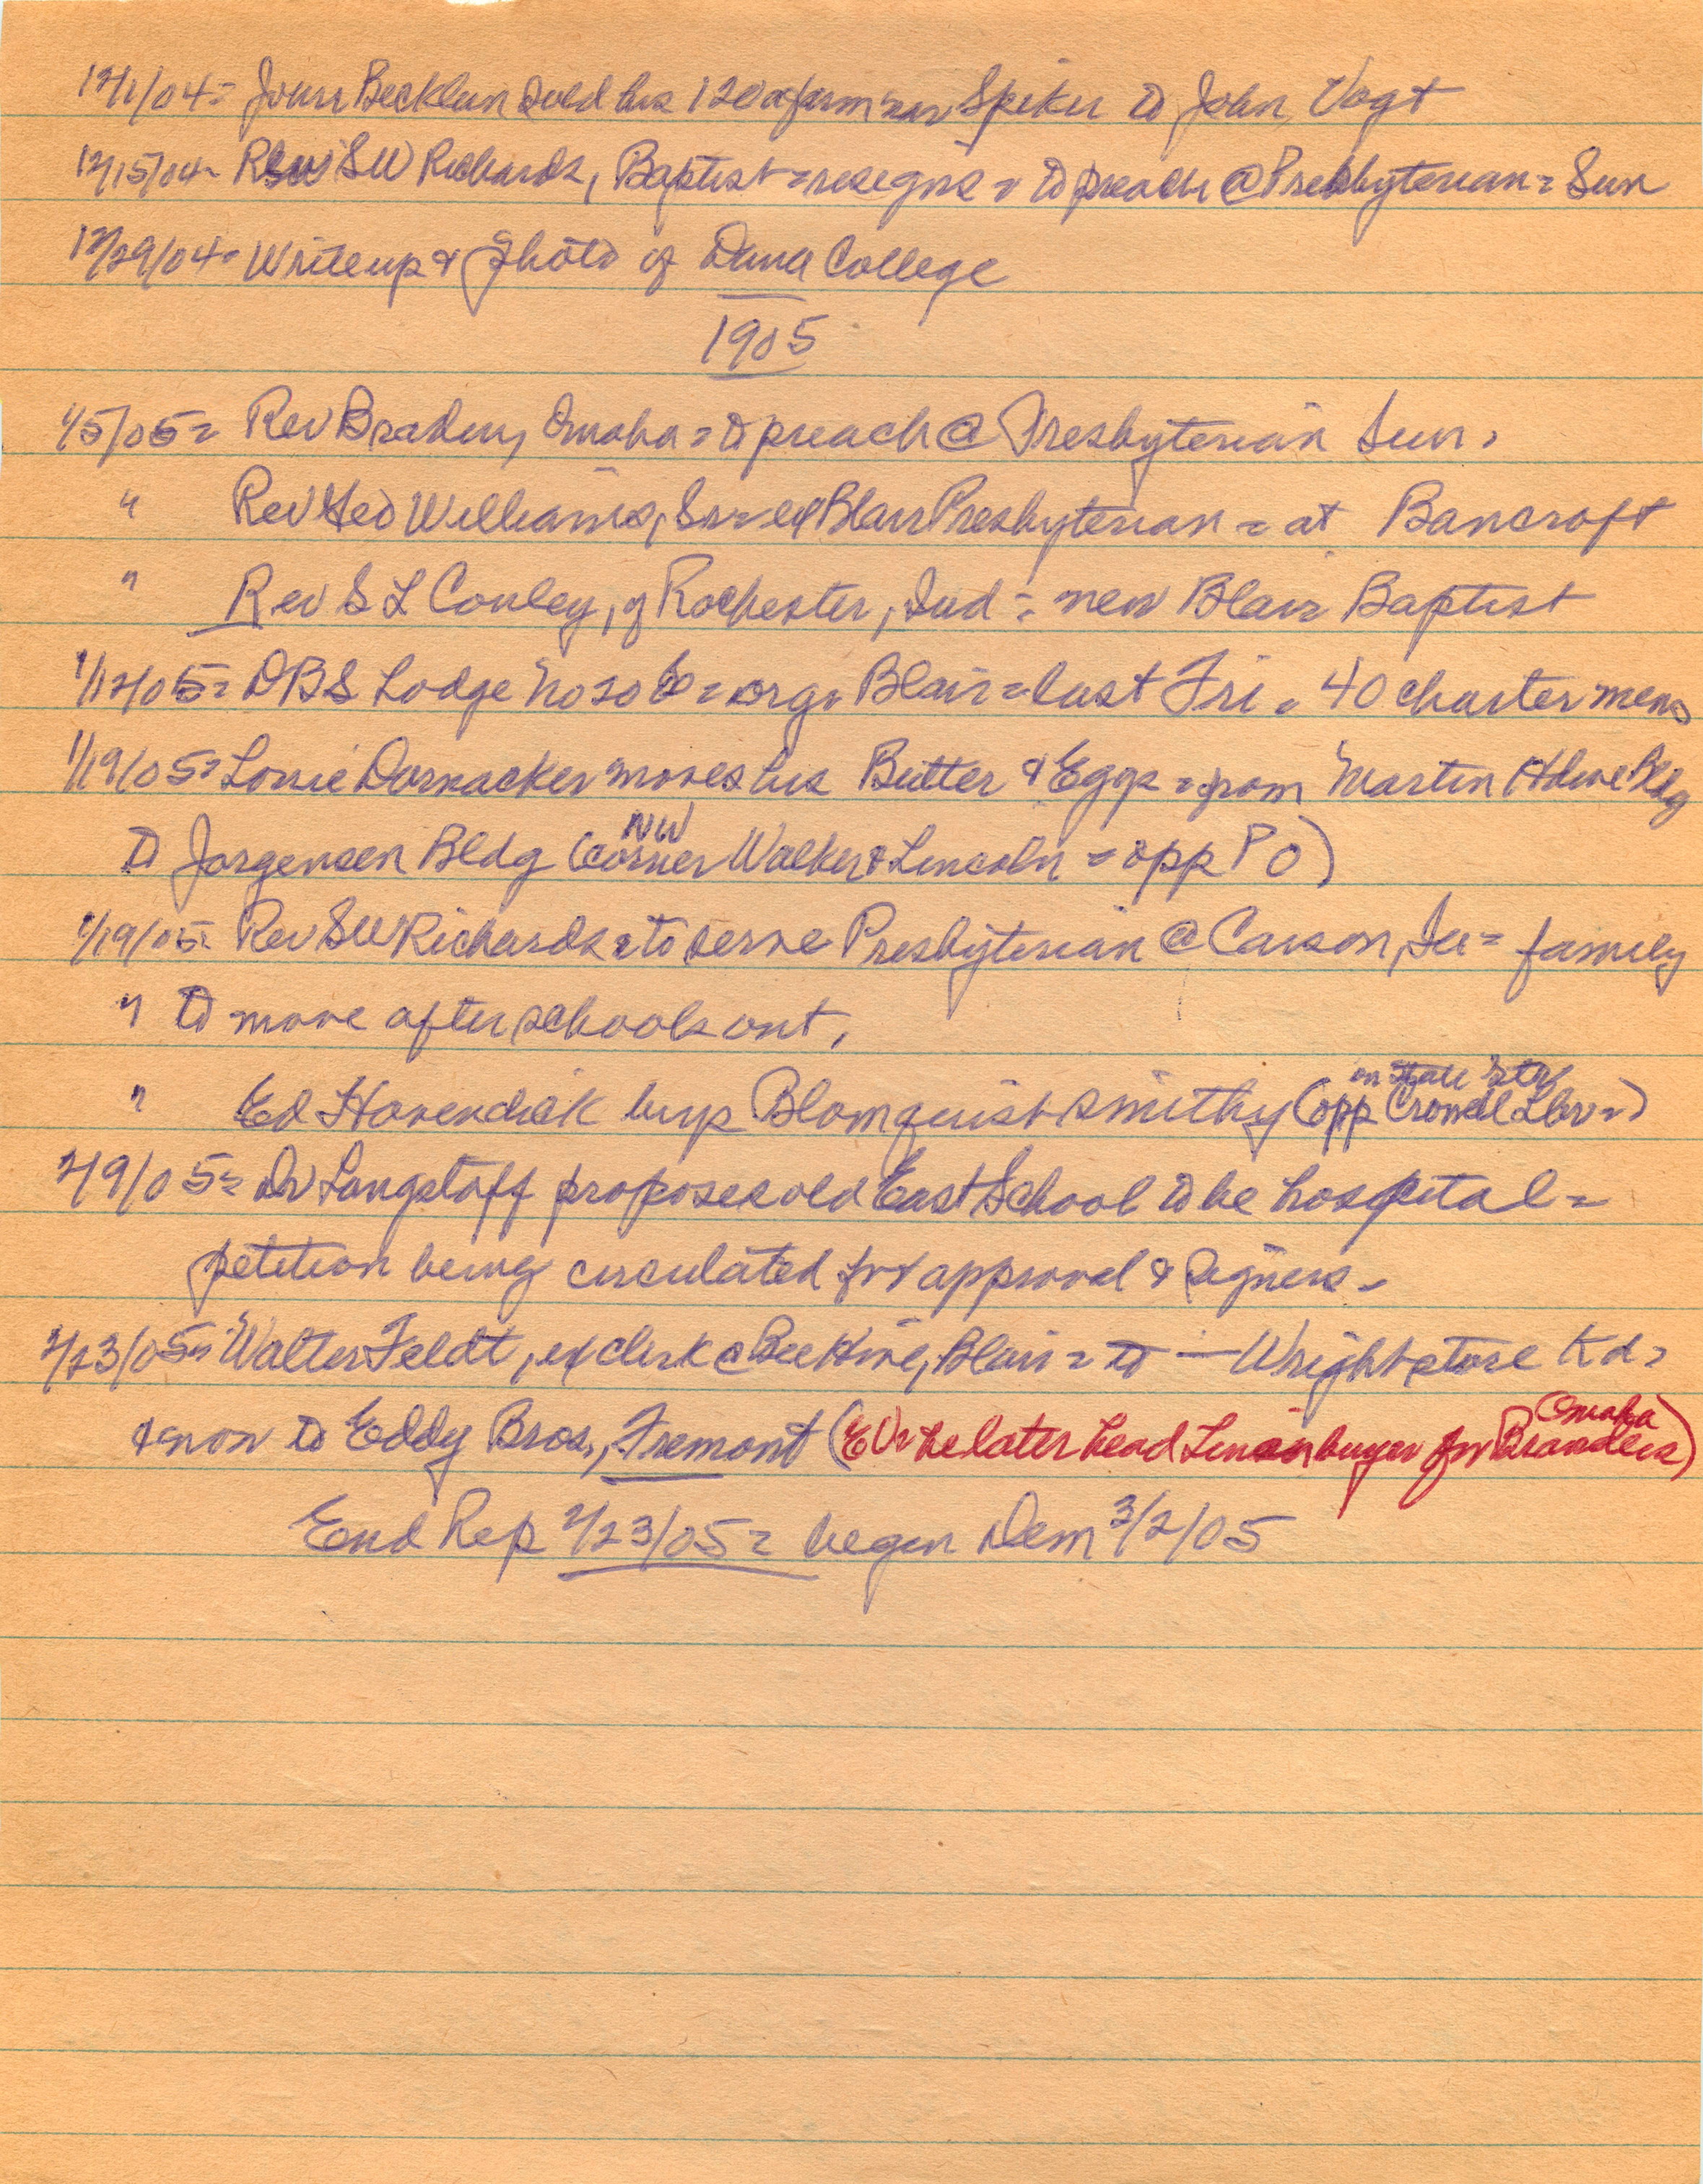 12/1/04= Jour Becklun sold his 120a farm near Spiker to John Vogt
12/15/04- Rev SW Richards, Baptist = resigns = to preach @ Presbyterian = Sun
12/29/04= Write up & Photo of Dana College
1905
1/5/05= Rev Braden, Omaha = to preach @ Presbyterian Sun.
" Rev Geo Williams, Sr = ex Blair Presbyterian = at Bancroft
" Rev S L Conley, of Rochester, Ind = new Blair Baptist
1/12/05= DBS Lodge No = org. Blair = last Fri. 40 charter mem
1/19/05= Lonie Darnacker moves his Butter & Eggs = from Martin Hdwe Bldg
to Jorgensen Bldg (NW corner Walker & Lincoln = opp PO)
1/19/05= Rev SW Richards = to serve Presbyterian @ Carson, Ia = family
" to move after schools out.
" Ed Havendick buys Blomquist smithy (opp Crowell Lbr =) on State Str
2/9/05= Dr Langstaff proposes old East School to be hospital =
petition being circulated for approval & signers -
2/23/05= Walter Feldt, ex clerk @ Bee Hive, Blair = to — Wright store Kd =
& now to Eddy Bros., Fremont (EV = he later head Linen buyer for Brandeis Omaha)
End Rep 2/23/05 = begin Dem 3/2/05